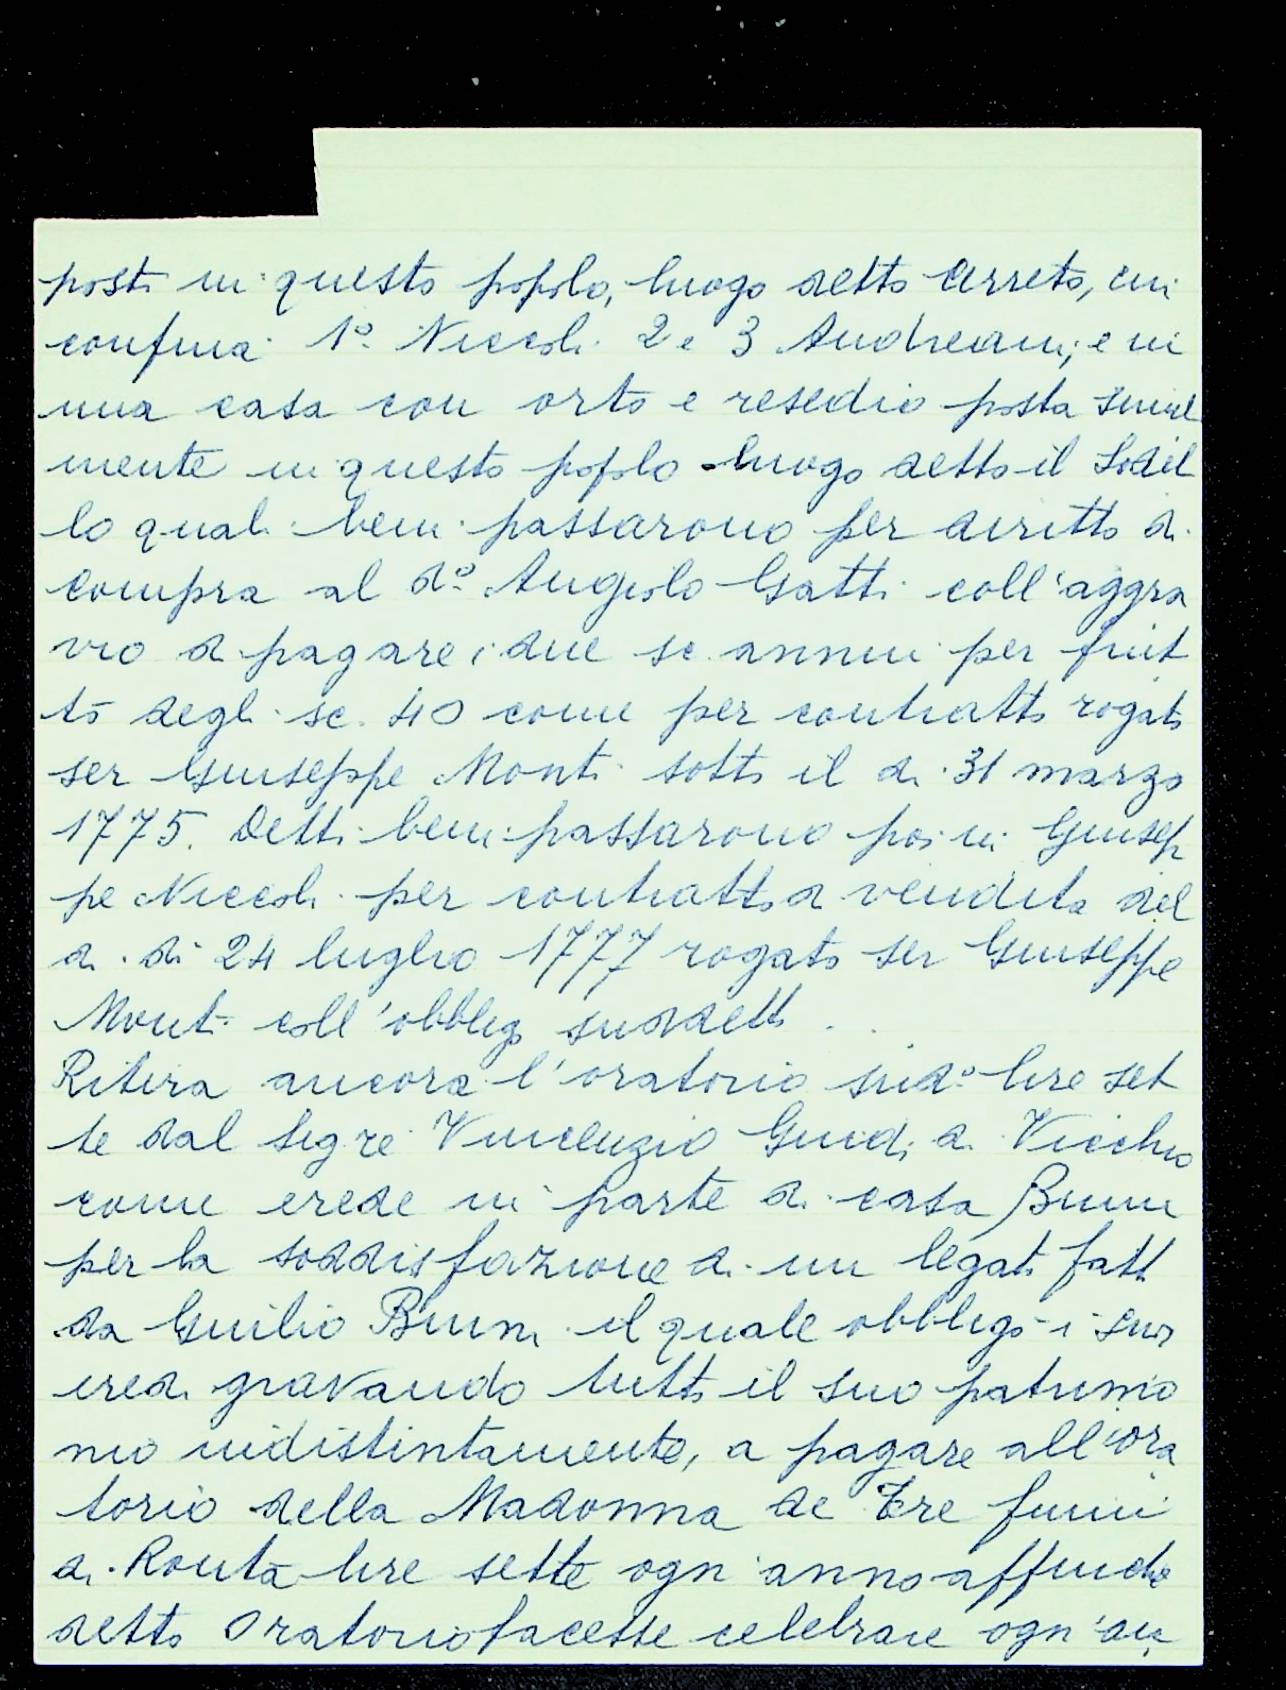 posti in questo popolo, luogo detto Cerreto, cui
confina 1º Niccoli 2 e 3 Andreani; e in
una casa con orto e resedio posta simil
mente in questo popolo luogo detto il Sodil
lo quali beni passarono per diritto di
compra al dº Angiolo Gatti coll'aggra
vio di pagare i due sc. annui per frut
to degli sc. 40 come per contratto rogato
ser Giuseppe Monti sotto il di 31 marzo
1775. Detti beni passarono poi in Giusep
pe Niccoli per contratto di vendita del
di di 24 luglio 1777 rogato ser Giuseppe
Monti coll'obbligo suddetto.
Ritira ancora l'oratorio sudº lire set
te dal sig re Vincenzio Guidi di Vicchio
come erede in parte di casa Bruni
per la soddisfazione di un legato fatto
da Giulio Bruni il quale obbligò i suoi
eredi gravando tutto il suo patrimo
nio indistintamente, a pagare all'ora
torio della Madonna de Tre fiumi
di Ronta lire sette ogn'anno affinche
detto Oratorio facesse celebrare ogn'an